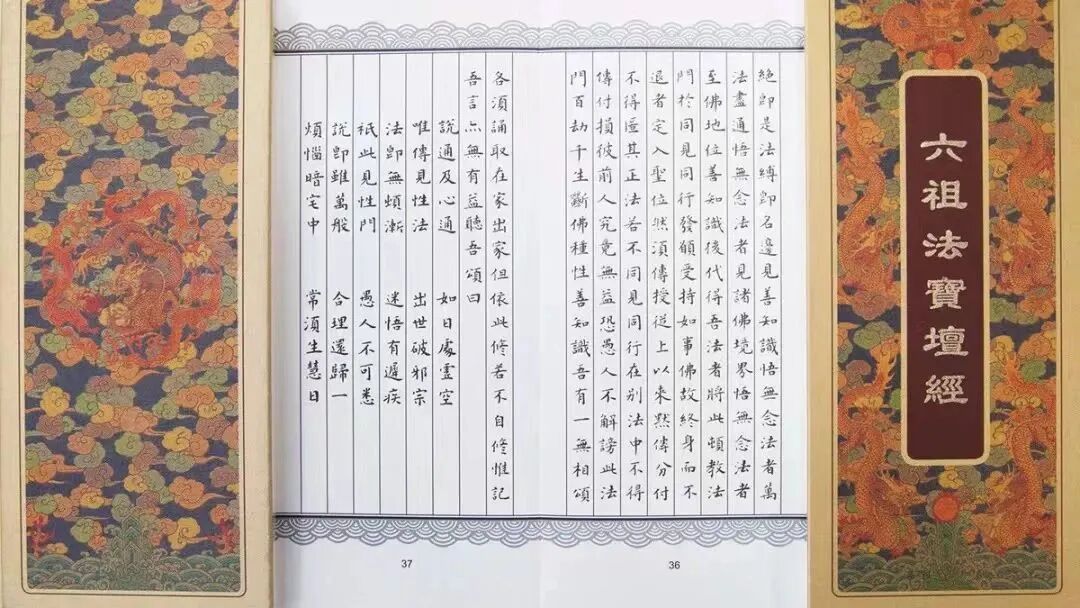 六祖法寶壇經
絕即是法縛即名邊見善知識悟無念法者萬
法盡通悟無念法者見諸佛境界悟無念法者
至佛地位善知識後代得吾法者將此頓教法
門於同見同行發願受持如事佛故終身而不
退者定入聖位然須傳授從上以來默傳分付
不得匿其正法若不同見同行在別法中不得
傳付損彼前人究竟無益恐愚人不解謗此法
門百劫千生斷佛種性善知識吾有一無相頌
36
各須誦取在家出家但依此修若不自修惟記
吾言亦無有益聽吾頌曰
說通及心通 如日處虛空
唯傳見性法 出世破邪宗
法即無頓漸 迷悟有遲疾
祇此見性門 愚人不可悉
說即雖萬般 合理還歸一
煩惱暗宅中 常須生慧日
37